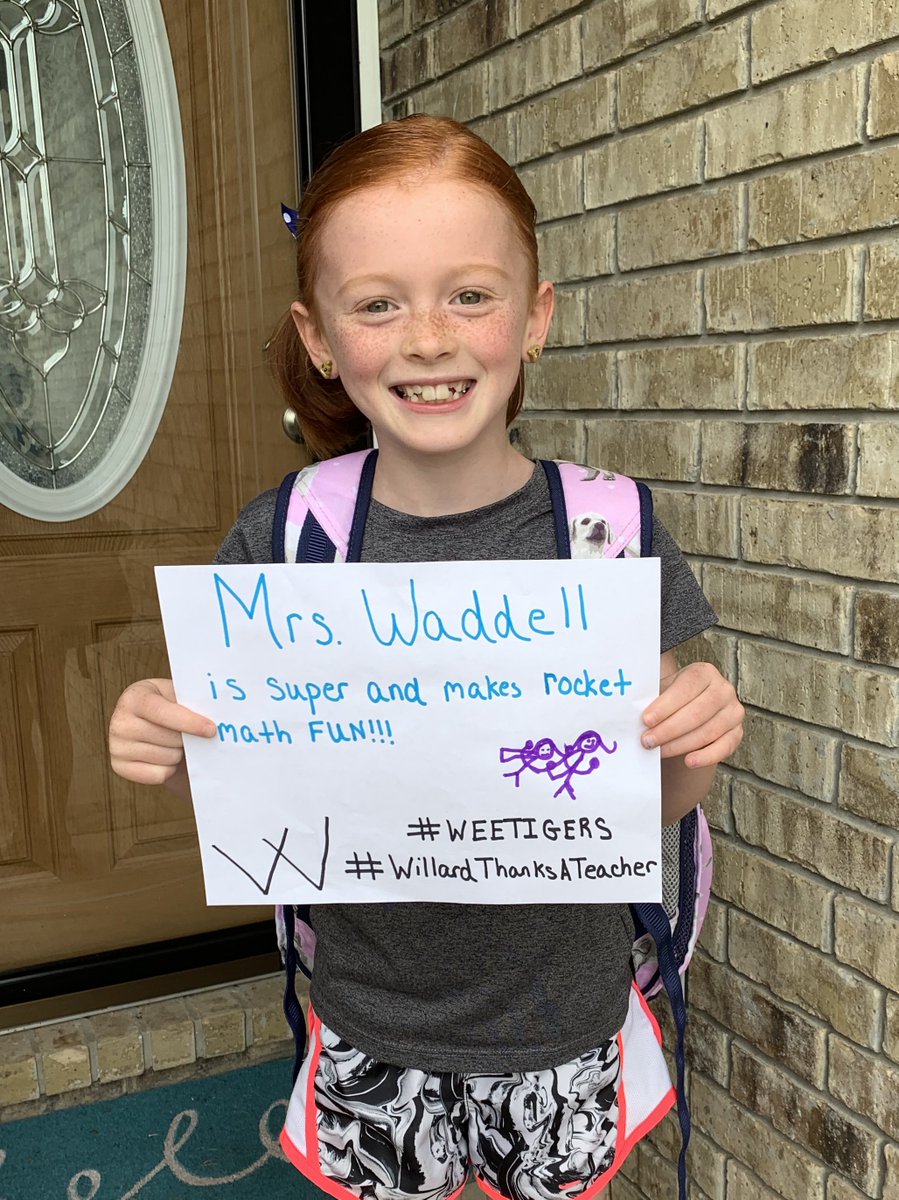 Mrs. Waddell
is super and makes rocket
math FUN!!!
#WEETIGERS
W #WillardThanksATeacher
hello